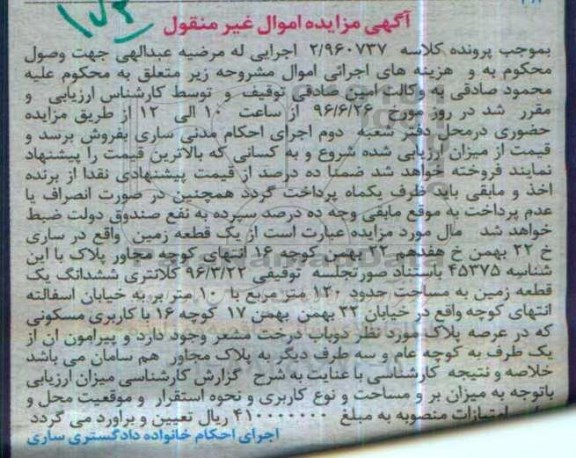 آگهی مزایده اموال غیر منقول
بموجب پرونده کلاسه ۲/۹۶۰۷۳۷ اجرایی له مرضیه عبدالهی جهت وصول
محکوم به و هزینه های اجرائی اموال مشروحه زیر متعلق به محکوم علیه
محمود صادقی به وکالت امین صادقی توقیف و توسط کارشناس ارزیابی و
مقرر شد در روز مورخ ۹۶/۶/۲۶ از ساعت ۱۰ الی ۱۲ از طریق مزایده
حضوری درمحل دفتر شعبه دوم اجرای احکام مدنی ساری بفروش برسد و
قیمت از میزان ارزیابی شده شروع و به کسانی که بالاترین قیمت را پیشنهاد
نمایند فروخته خواهد شد ضمنا ده درصد از قیمت پیشنهادی نقدا از برنده
اخذ و مابقی باید ظرف یکماه پرداخت گردد همچنین در صورت انصراف یا
عدم پرداخت به موقع مابقی وجه ده درصد سپرده به نفع صندوق دولت ضبط
خواهد شد مال مورد مزایده عبارت است از یک قطعه زمین واقع در ساری
خ ۲۲ بهمن خ هفدهم ۲۲ بهمن کوچه ۱۶ انتهای کوچه مجاور پلاک با این
شناسه ۴۵۳۷۵ باستناد صورتجلسه توقیفی ۹۶/۳/۲۲ کلانتری ششدانگ یک
قطعه زمین به مساحت حدود ۱۲۰ متر مربع با ۱۰ متر بر به خیابان اسفالته
انتهای کوچه واقع در خیابان ۲۲ بهمن بهمن ۱۷ کوچه ۱۶ با کاربری مسکونی
که در عرصه پلاک مورد نظر دوباب درخت مشعر وجود دارد و پیرامون ان از
یک طرف به کوچه عام و سه طرف دیگر به پلاک مجاور هم سامان می باشد
خلاصه و نتیجه کارشناسی با عنایت به شرح گزارش کارشناسی میزان ارزیابی
باتوجه به میزان بر و مساحت و نوع کاربری و نحوه استقرار و موقعیت محل و
امتیازات منصوبه به مبلغ ۴۱۰۰۰۰۰۰۰ ریال تعیین و براورد می گردد
اجرای احکام خانواده دادگستری ساری